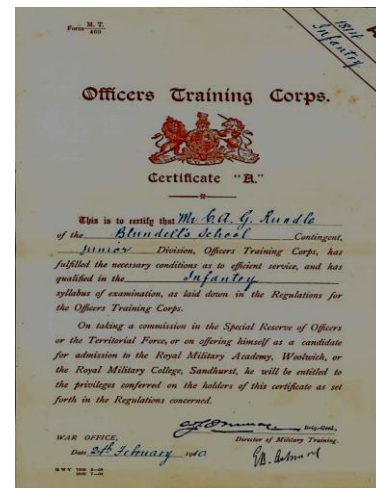 Form M. T.
460
Infantry
Officers Training Corps.
Certificate "A."
This is to certify that Mr C. A. G. Rundle
of the Blundell's School Contingent,
Junior Division, Officers Training Corps, has
fulfilled the necessary conditions as to efficient service, and has
qualified in the Infantry
syllabus of examination, as laid down in the Regulations for
the Officers Training Corps.
On taking a commission in the Special Reserve of Officers
or the Territorial Force, or on offering himself as a candidate
for admission to the Royal Military Academy, Woolwich, or
the Royal Military College, Sandhurst, he will be entitled to
the privileges conferred on the holders of this certificate as set
forth in the Regulations concerned.
Brig.-Genl.,
WAR OFFICE, Director of Military Training.
Date February 1910